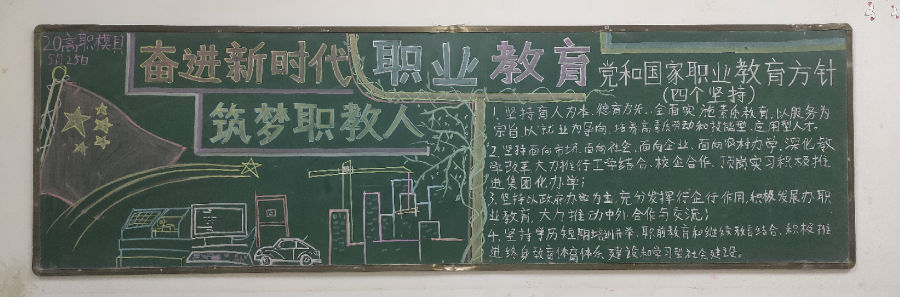 20高职模具
5月25日
奋进新时代 职业教育
筑梦职教人
党和国家职业教育方针
(四个坚持)
1、坚持育人为本,德育为先,全面实施素质教育,以服务为
宗旨,以就业为导向,培养高素质劳动和技能型、应用型人才。
2、坚持面向市场,面向社会,面向企业,面向农村办学,深化教
改革大力推行工学结合,校企合作,顶岗实习积极推
进集团化办学;
3、坚持以政府办学为主,充分发挥行企行作用,积极发展办职
业教育,大力推动中外合作与交流;
4、坚持学历短期培训并举,职前教育和继续教育结合,积极推
进终身教育体育体系建设和学习型社会建设。